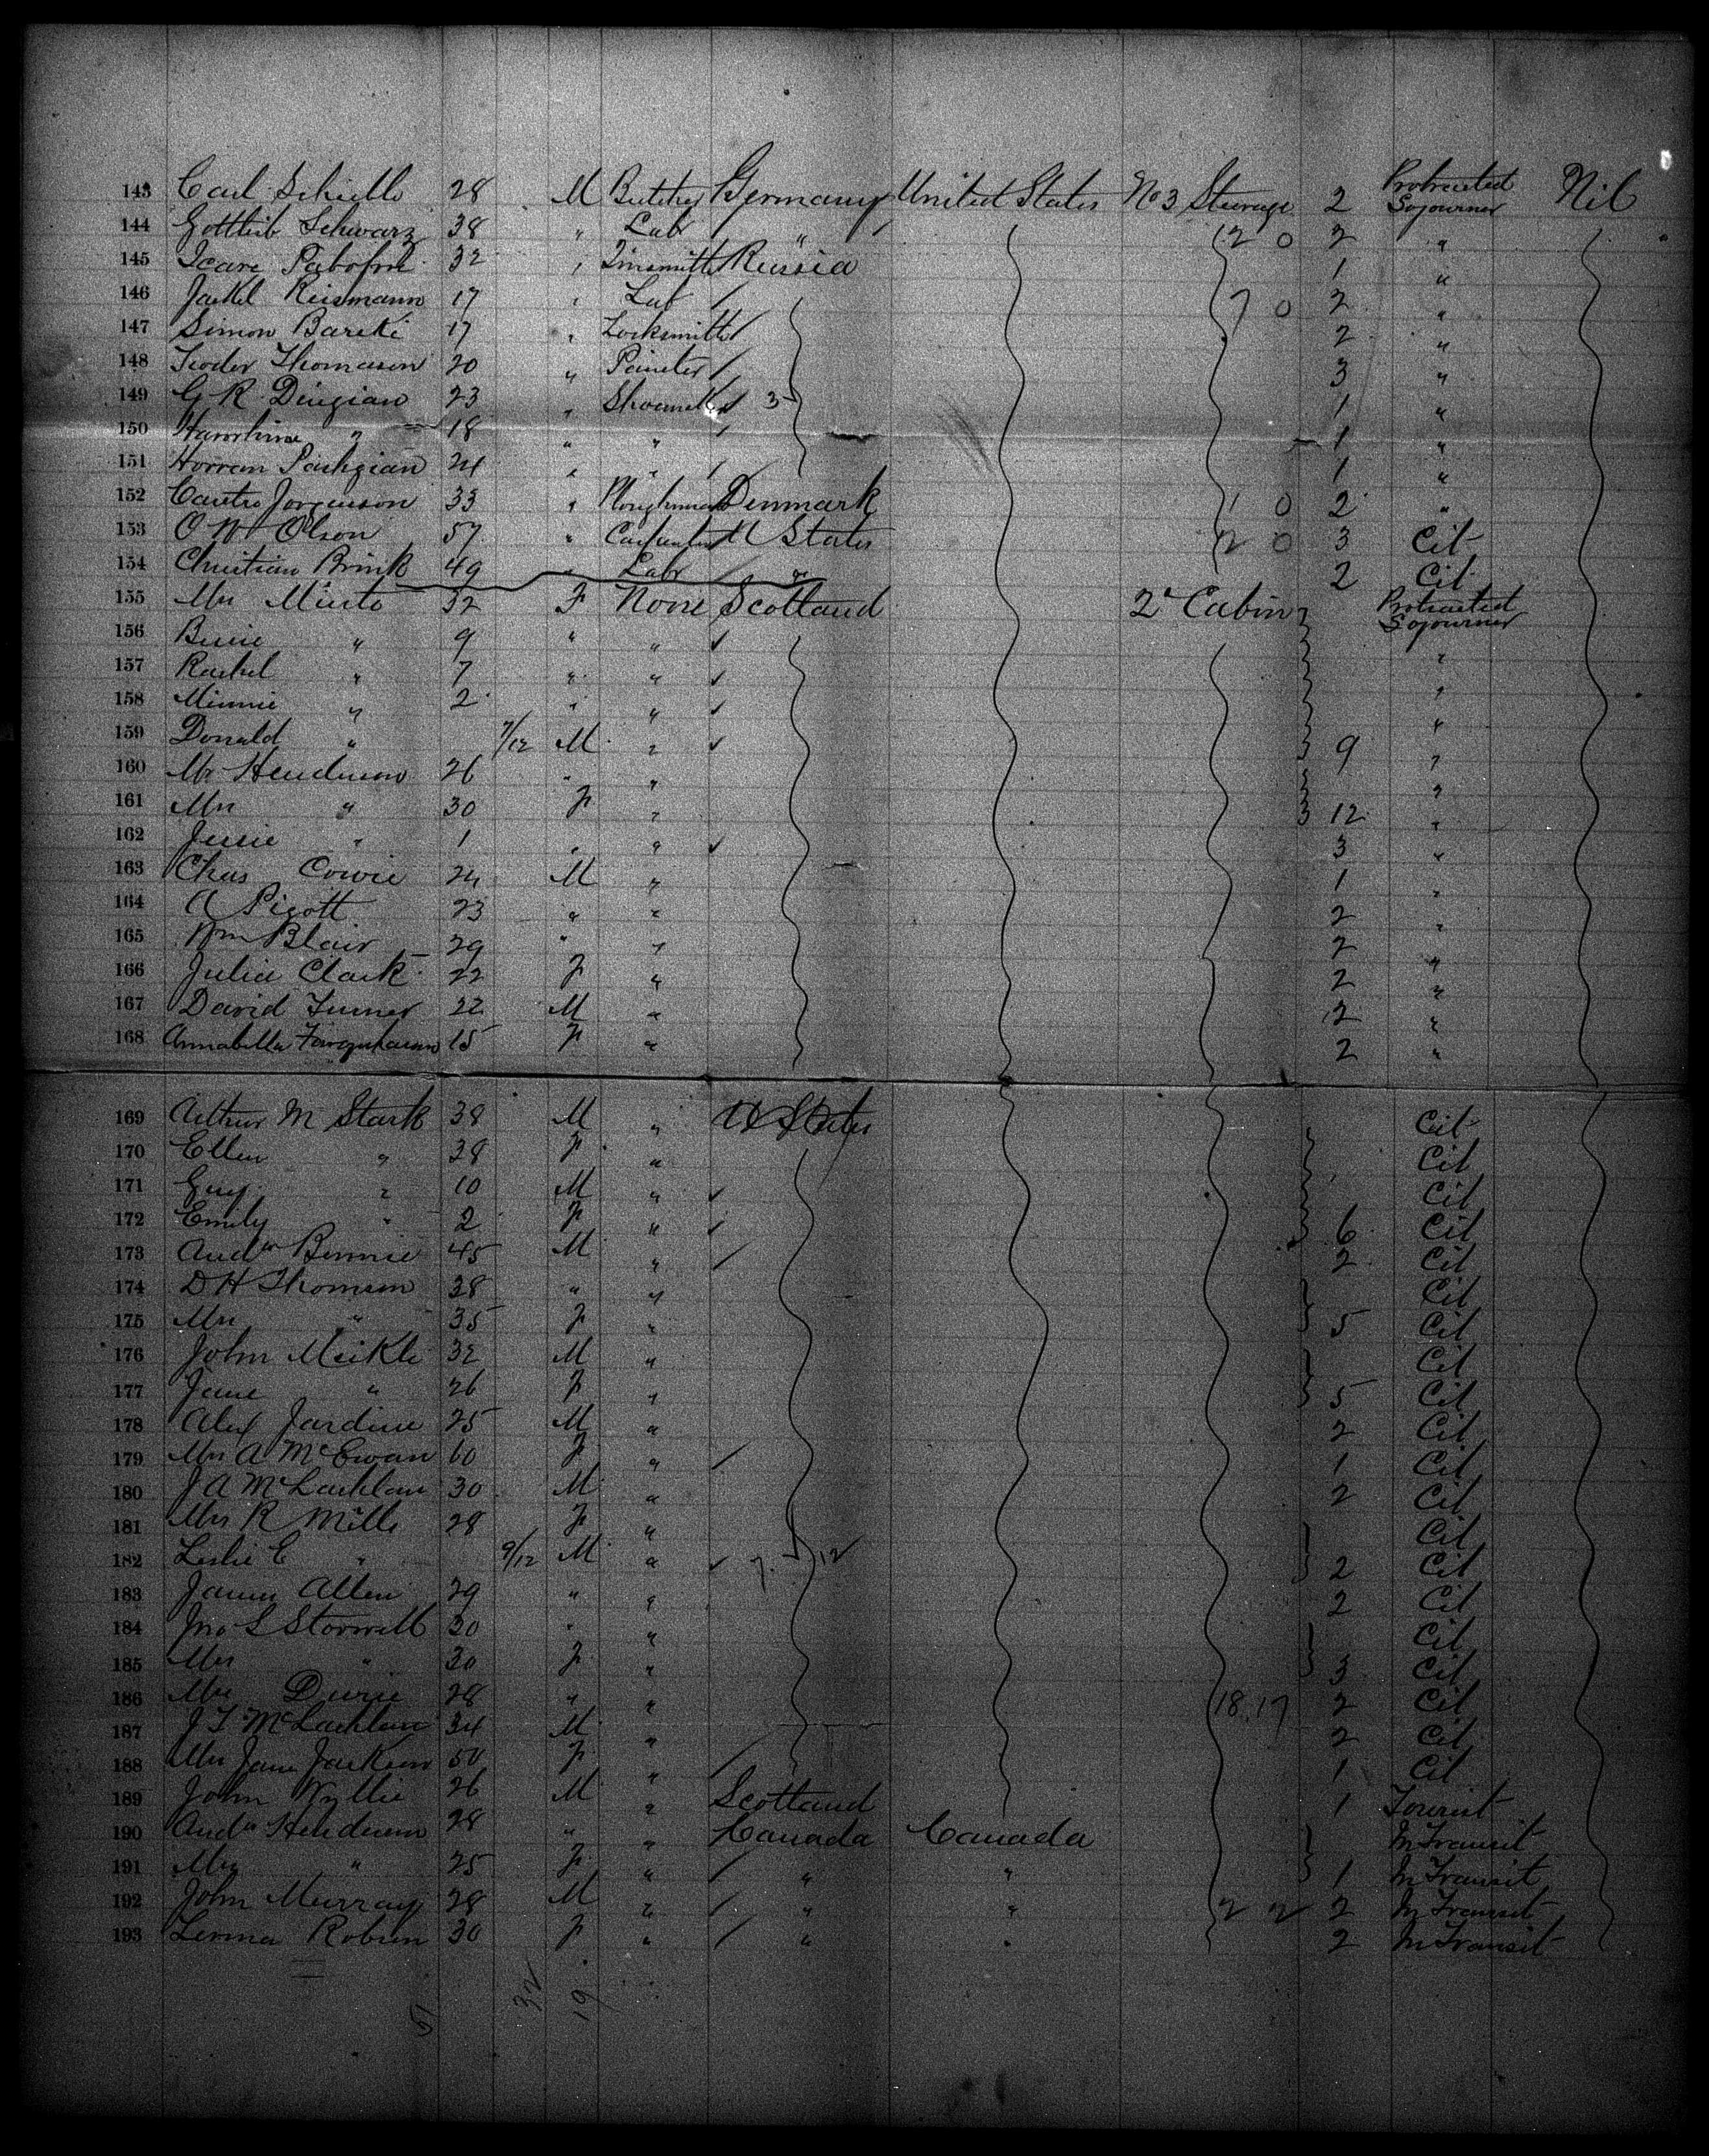 143 Carl Schiello 28 M Butcher Germany United States No 3 Steerage 2 Protracted Sojourner Nil
144 Gottlieb Schwarz 38 " Labr " 2 0 2 "
145 32 " Tinsmith Russia 1 "
146 Jaekel Reismann 17 " Labr 7 0 2 "
147 Simon Bareki 17 " Locksmith 2 "
148 Teodor Thomasen 20 " Painter 3 "
149 G R Dingian 23 " Shoemaker 3 1 "
150 " 18 " " 1 "
151 24 " " 1 "
152 Jorgenson 33 " Ploughman Denmark 1 0 2 "
153 O W Olson 57 " Carpenter U States 2 0 3 Cit
154 Christian Brink 49 " Labr " 2 Cit
155 Mrs Minto 32 F None Scotland 2d Cabin Protracted Sojourner
156 " 9 " " "
157 Rachel " 7 " " "
158 Minnie " 2 " " "
159 Donald " 7/12 M " 9 "
160 Mr Henderson 26 " " "
161 Mrs " 30 F " 12 "
162 Jessie " 1 " " 3 "
163 Chas Cowie 24 M " 1 "
164 A Pigott 23 " " 2 "
165 Wm Blair 29 " " 2 "
166 Julia Clark 22 F " 2 "
167 David Turner 22 M " 2 "
168 Annabella Farquharson 15 F " 2 "
169 Arthur M Stark 38 M " U States Cit
170 Ellen " 38 F " Cit
171 Guy " 10 M " Cit
172 Emily " 2 F " 6 Cit
173 Andw Binnie 45 M " 2 Cit
174 D H Thomson 38 " " Cit
175 Mrs " 35 F " 5 Cit
176 John Meikle 32 M " Cit
177 Jane " 26 F " 5 Cit
178 Alex Jardine 25 M " 2 Cit
179 Mrs A McEwan 60 F " 1 Cit
180 J A McLachlan 30 M " 2 Cit
181 Mrs R Mills 28 F " Cit
182 Leslie E " 9/12 M " 7 12 2 Cit
183 James Allen 29 " " 2 Cit
184 Jno S 30 " " Cit
185 Mrs " 30 F " 3 Cit
186 Mrs Durie 28 " " 18.17 2 Cit
187 J T McLachlan 34 M " 2 Cit
188 Mrs Jane Jackson 50 F " 1 Cit
189 John Wyllie 26 M " Scotland 1 Tourist
190 Andw Henderson 28 " " Canada Canada In Transit
191 Mrs " 25 F " " " 1 In Transit
192 John Murray 28 M " " " 2 2 2 In Transit
193 Robson 30 F " " " 2 In Transit
32 19